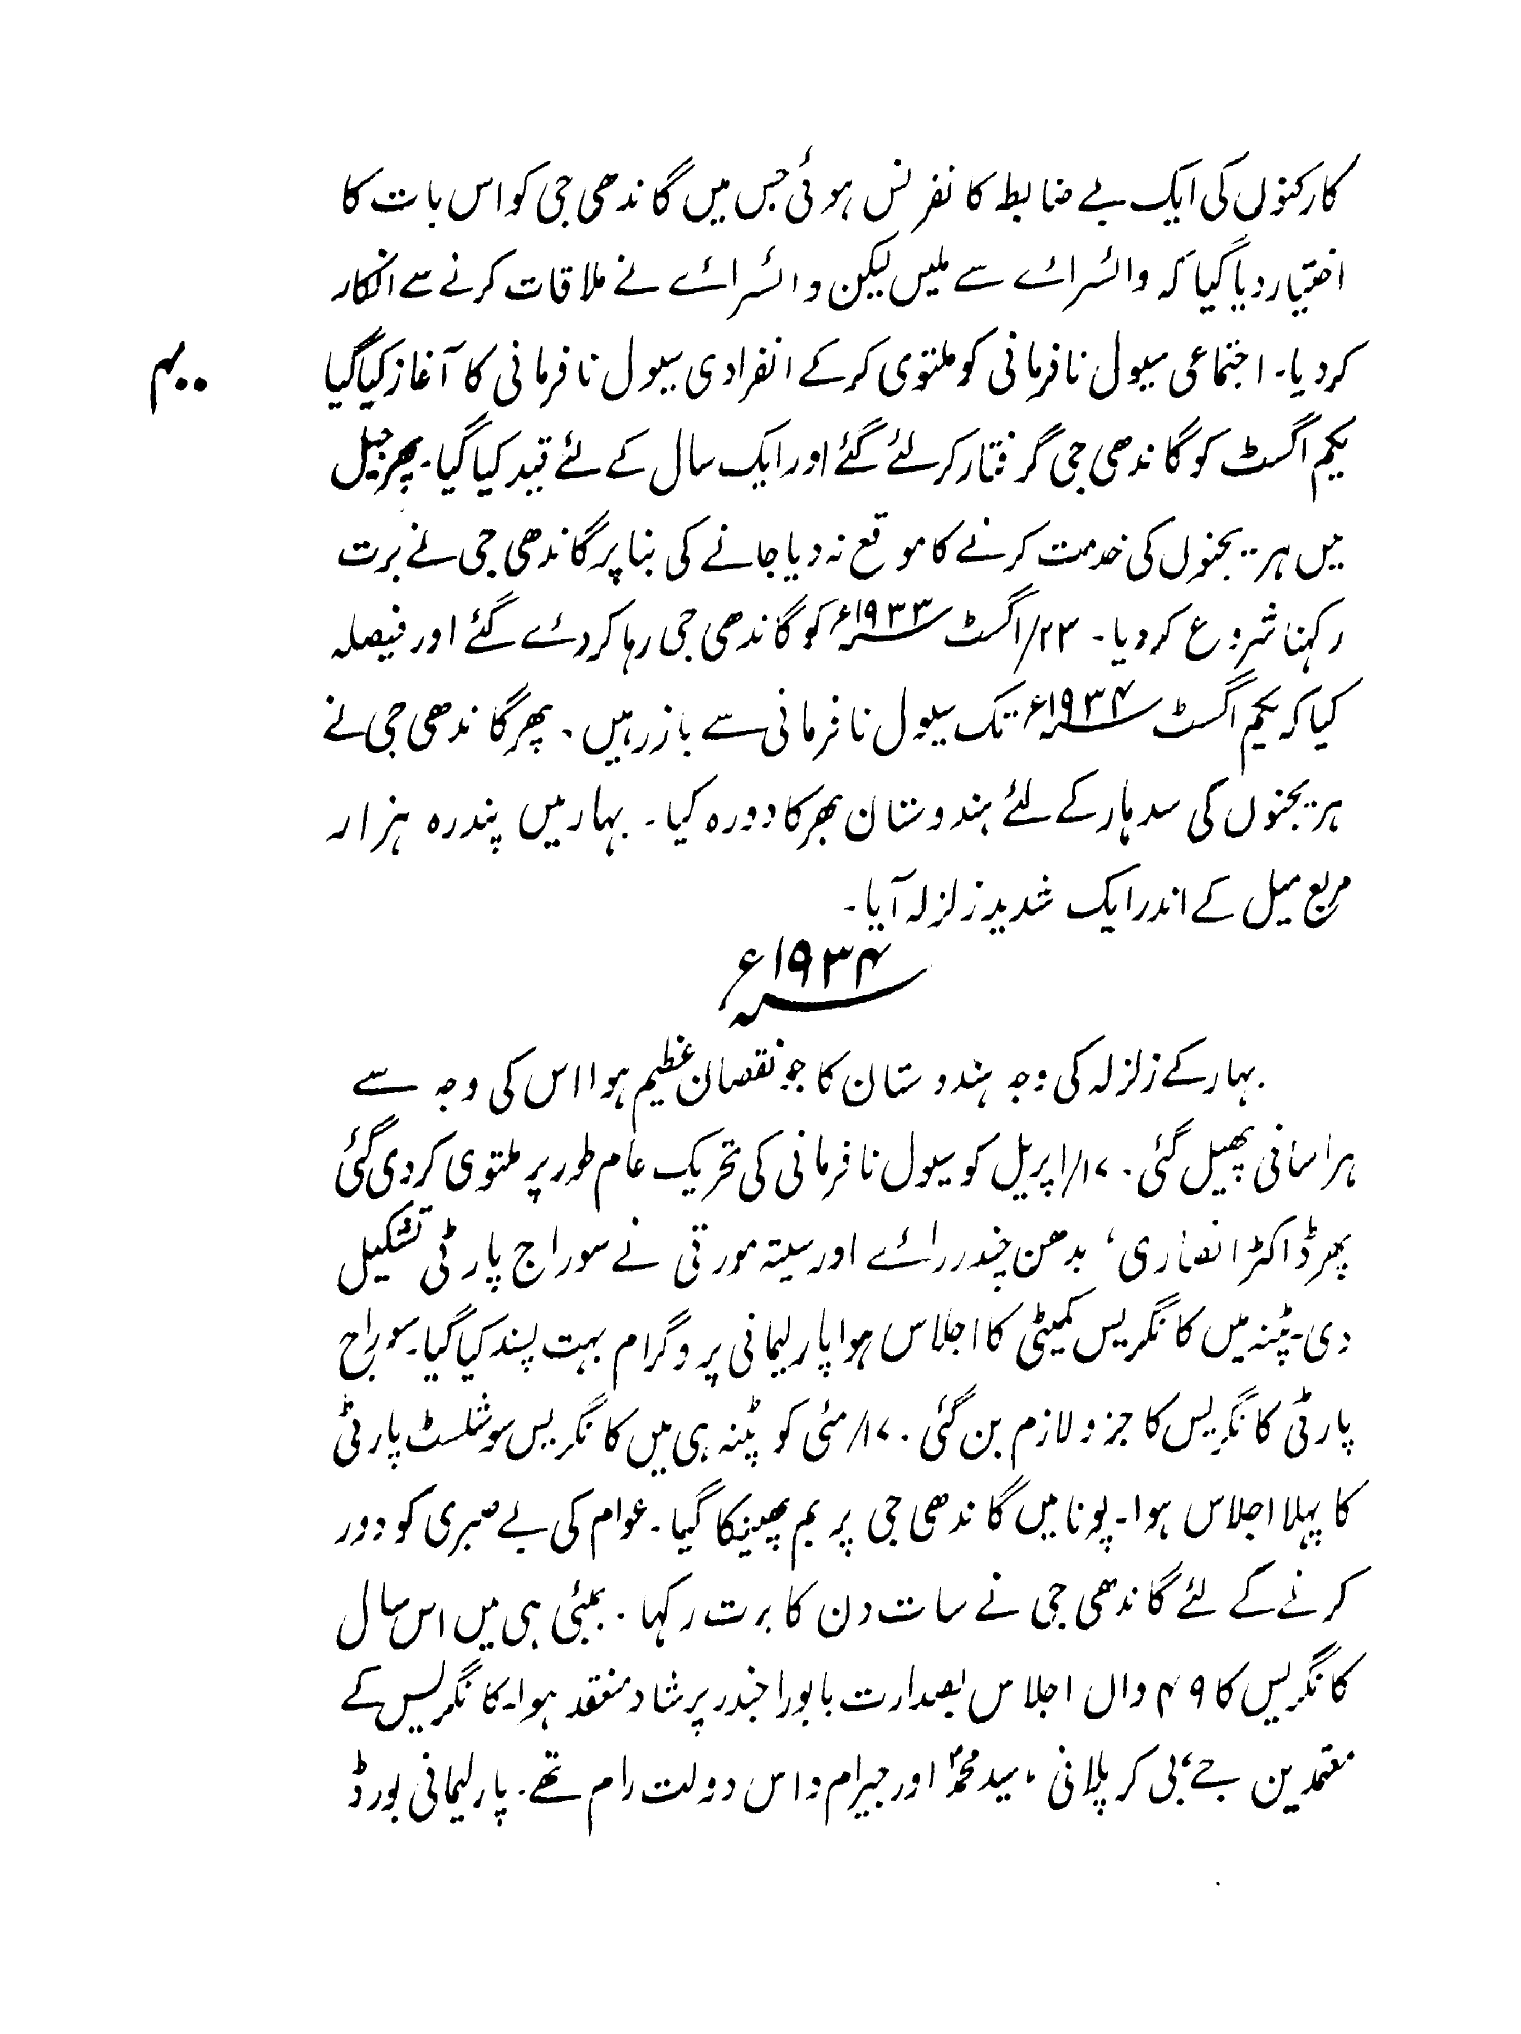 کارکنوں کی ایک بے ضابطہ کانفرنس ہوئی جس میں گاندھی جی کو اس بات کا
اختیار دیا گیا کہ وائسرائے سے ملیں لیکن وائسرائے نے ملاقات کرنے سے انکار
کر دیا۔ اجتماعی سیول نافرمانی کو ملتوی کرکے انفرادی سیول نافرمانی کا آغاز کیا گیا
۴۰۰
یکم اگسٹ کو گاندھی جی گرفتار کر لئے گئے اور ایک سال کے لئے قید کیا گیا۔ پھر جیل
میں ہریجنوں کی خدمت کرنے کا موقع نہ دیا جانے کی بنا پر گاندھی جی نے برت
رکھنا شروع کر دیا۔ ۲۳/اگسٹ ۱۹۳۳ء کو گاندھی جی رہا کر دئے گئے اور فیصلہ
کیا کہ یکم اگسٹ ۱۹۳۴ء تک سیول نافرمانی سے باز رہیں۔ پھر گاندھی جی نے
ہریجنوں کی سدہار کے لئے ہندوستان بھر کا دورہ کیا۔ بہار میں پندرہ ہزار
مربع میل کے اندر ایک شدید زلزلہ آیا۔
۱۹۳۴ء
بہار کے زلزلہ کی وجہ ہندوستان کا جو نقصان عظیم ہوا اس کی وجہ سے
ہراسانی پھیل گئی۔ ۱۷/اپریل کو سیول نافرمانی کی تحریک عام طور پر ملتوی کر دی گئی
پھر ڈاکٹر انصاری، بدھن چندر رائے اور سیتہ مورتی نے سوراج پارٹی تشکیل
دی۔ پٹنہ میں کانگریس کمیٹی کا اجلاس ہوا پارلیمانی پروگرام بہت پسند کیا گیا۔ سوراج
پارٹی کانگریس کا جزو لازم بن گئی۔ ۱۷/مئی کو پٹنہ ہی میں کانگریس سوشلسٹ پارٹی
کا پہلا اجلاس ہوا۔ پونا میں گاندھی جی پر بم پھینکا گیا۔ عوام کی بے صبری کو دور
کرنے کے لئے گاندھی جی نے سات دن کا برت رکھا۔ بمبئی ہی میں اس سال
کانگریس کا ۴۹ واں اجلاس بصدارت بابو راجندر پرشاد منعقد ہوا۔ کانگریس کے
معتمدین جے، بی کرپلانی، سید محمدؐ اور جیرام داس دولت رام تھے۔ پارلیمانی بورڈ